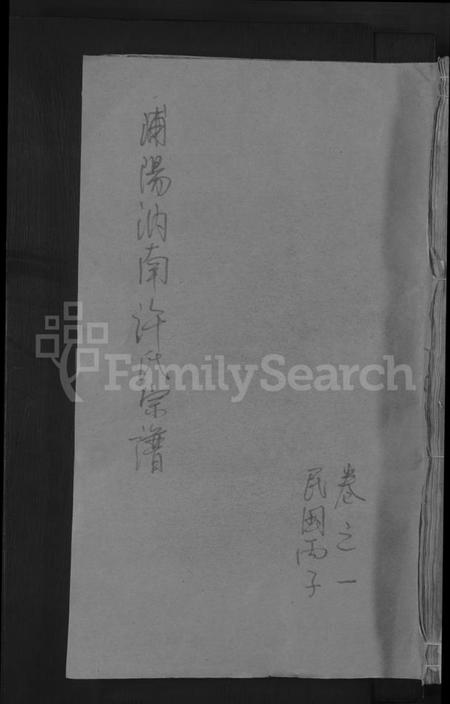 浦陽汭南許氏宗譜
卷之一
民國丙子
FamilySearch